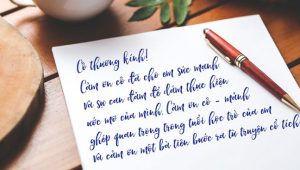 Cô thương kính!
Cảm ơn cô đã cho em sức mạnh
và sự can đảm để dám thực hiện
ước mơ của mình. Cảm ơn cô - mảnh
ghép quan trọng trong tuổi học trò của em
và cảm ơn một bà tiên bước ra từ truyện cổ tích